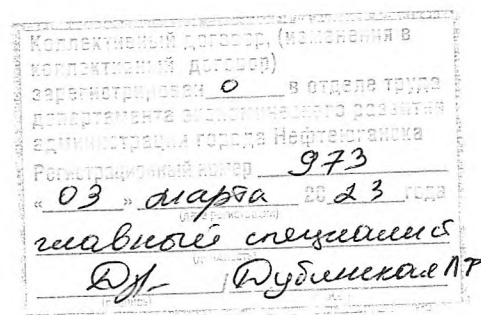 Коллективный договор, (изменения в
коллективный договор)
зарегистрирован о в отделе труда
департамента экономического развития
администрации города Нефтеюганска
Регистрационный номер 973
« 03 » марта 20 23 года
(дата регистрации)
главный специалист
(должность)
/ Дубинская
(подпись)